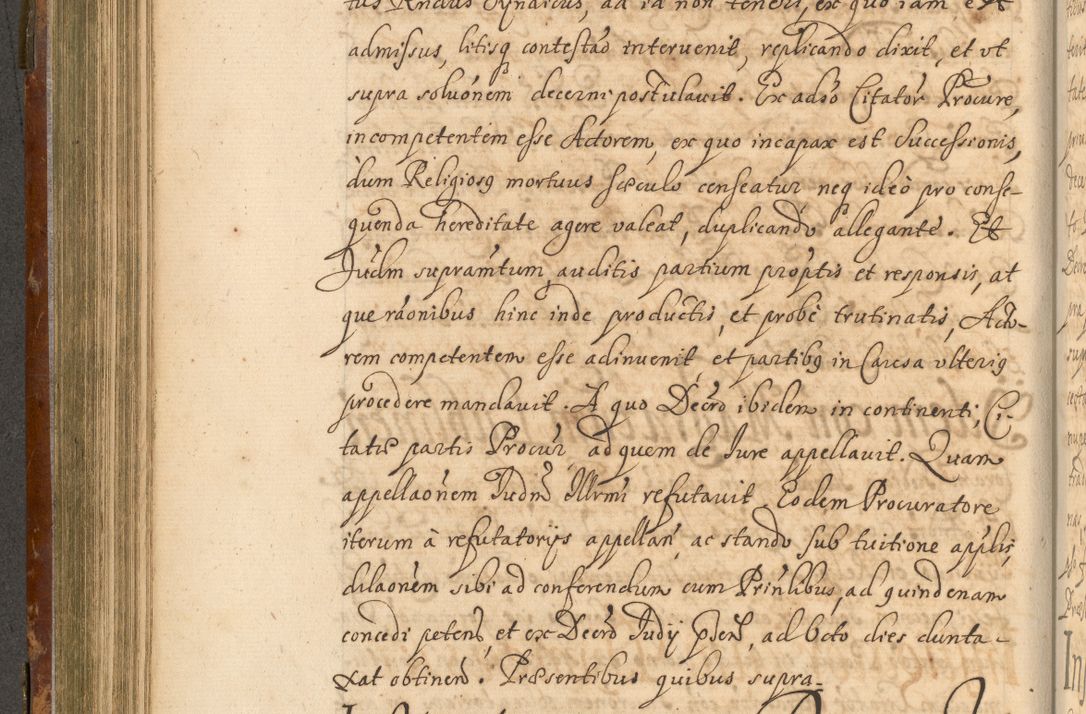 tus Rndus Syndicus, ad id non teneri, ex quo iam est
admissus, litisq contestão interuenit, replicando dixit, et vt
supra soluónem decerni postulauit. Ex adso Citator Procure,
incompetentem esse Actorem, ex quo incapax est Successionis,
dum Religiosq mortuus sæculo censeatur neq ideò pro conse-
quenda hereditate agere valeat, duplicando allegante. Et
Judm supramtum, auditis partium proptis et responsis, at
que ráonibus hinc inde productis, et probè trutinatis, Acto-
rem competentem esse adinuenit, et partibq in Causa vlteriq
procedere mandauit. A quo Decro ibidem in continenti, Ci-
tatæ partis Procur, ad quem de Jure appellauit. Quam
appellaonem Judm Illrmi refutauit. Eodem Procuratore
iterum à refutatorijs appellan, ac stando sub tuitione applis,
dilaonem sibi ad conferendum cum Prinlibus, ad quindenam
concedi peten, et ex Decro Judij Psen, ad octo dies dunta-
xat obtinen. Præsentibus quibus supra-